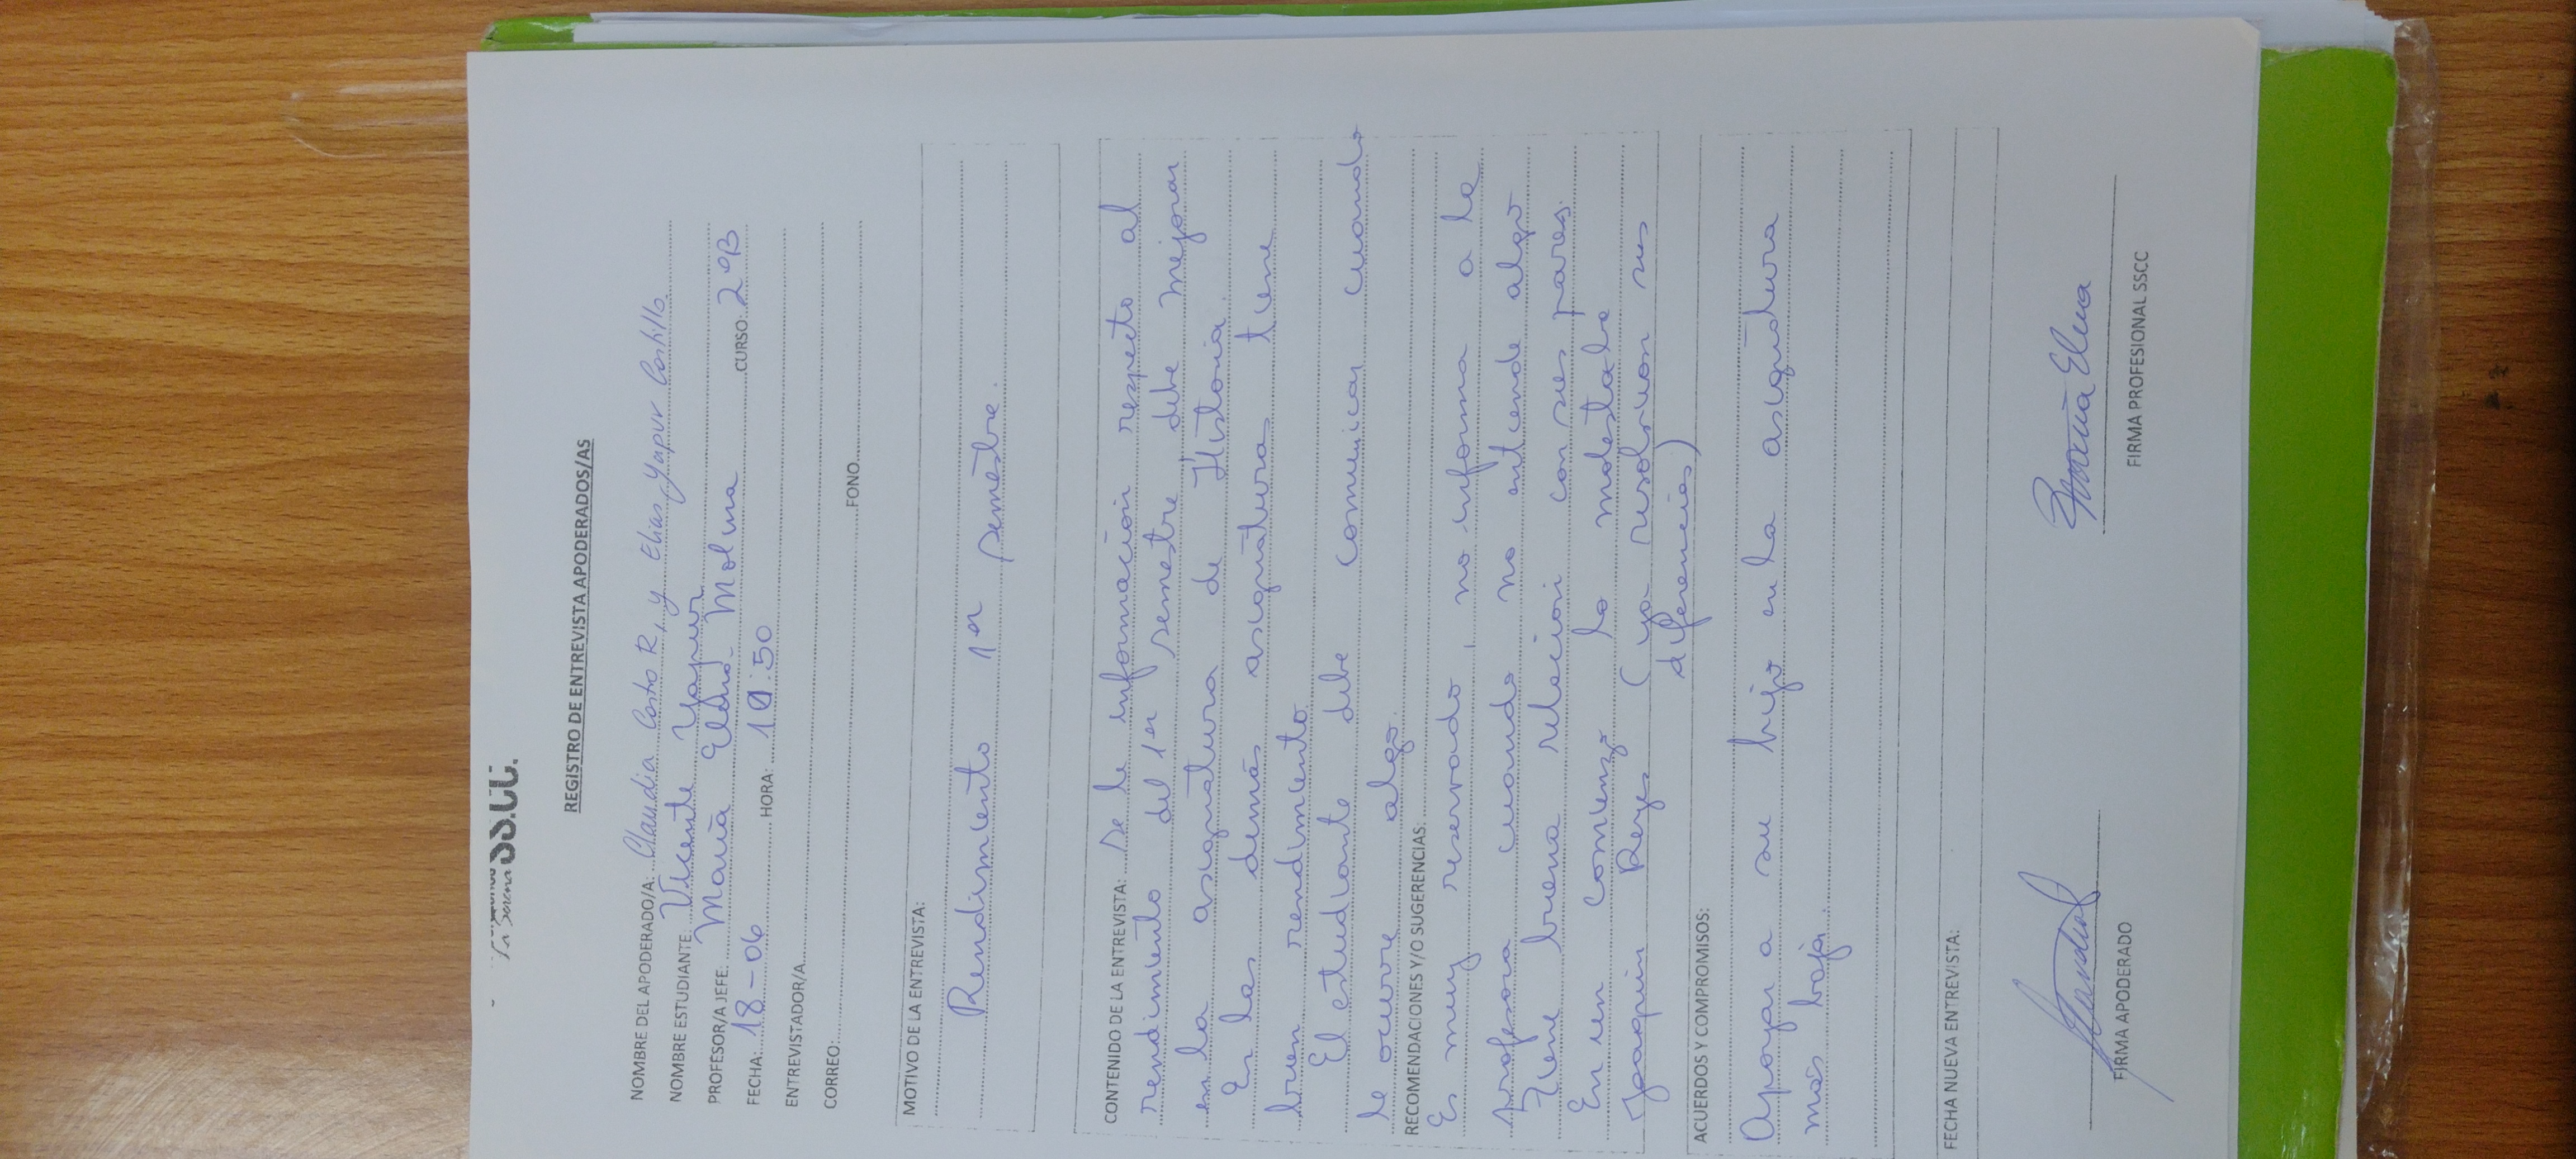 La Serena SS.CC.
REGISTRO DE ENTREVISTA APODERADOS/AS
NOMBRE DEL APODERADO/A: Claudia Castro R, y Elias Yapur Castillo
NOMBRE ESTUDIANTE: Vicente Yapur
PROFESOR/A JEFE: María Elena Molina CURSO: 2°B
FECHA: 18-06 HORA: 10:50
ENTREVISTADOR/A
CORREO: FONO
MOTIVO DE LA ENTREVISTA:
Rendimiento 1er semestre.
CONTENIDO DE LA ENTREVISTA: Se le información respecto al
rendimiento del 1er semestre debe mejorar
en la asignatura de Historia.
En las demás asignaturas tiene
buen rendimiento.
El estudiante debe comunicar cuando
le ocurre algo.
RECOMENDACIONES Y/O SUGERENCIAS:
Es muy reservado, no informa a la
profesora cuando no entiende algo
Tiene buena relación con sus pares.
En un comienzo lo molestaba
Joaquin Reyes (ya resolvieron sus
diferencias)
ACUERDOS Y COMPROMISOS:
Apoyar a su hijo en la asignatura
más baja.
FECHA NUEVA ENTREVISTA:
María Elena
FIRMA APODERADO FIRMA PROFESIONAL SSCC